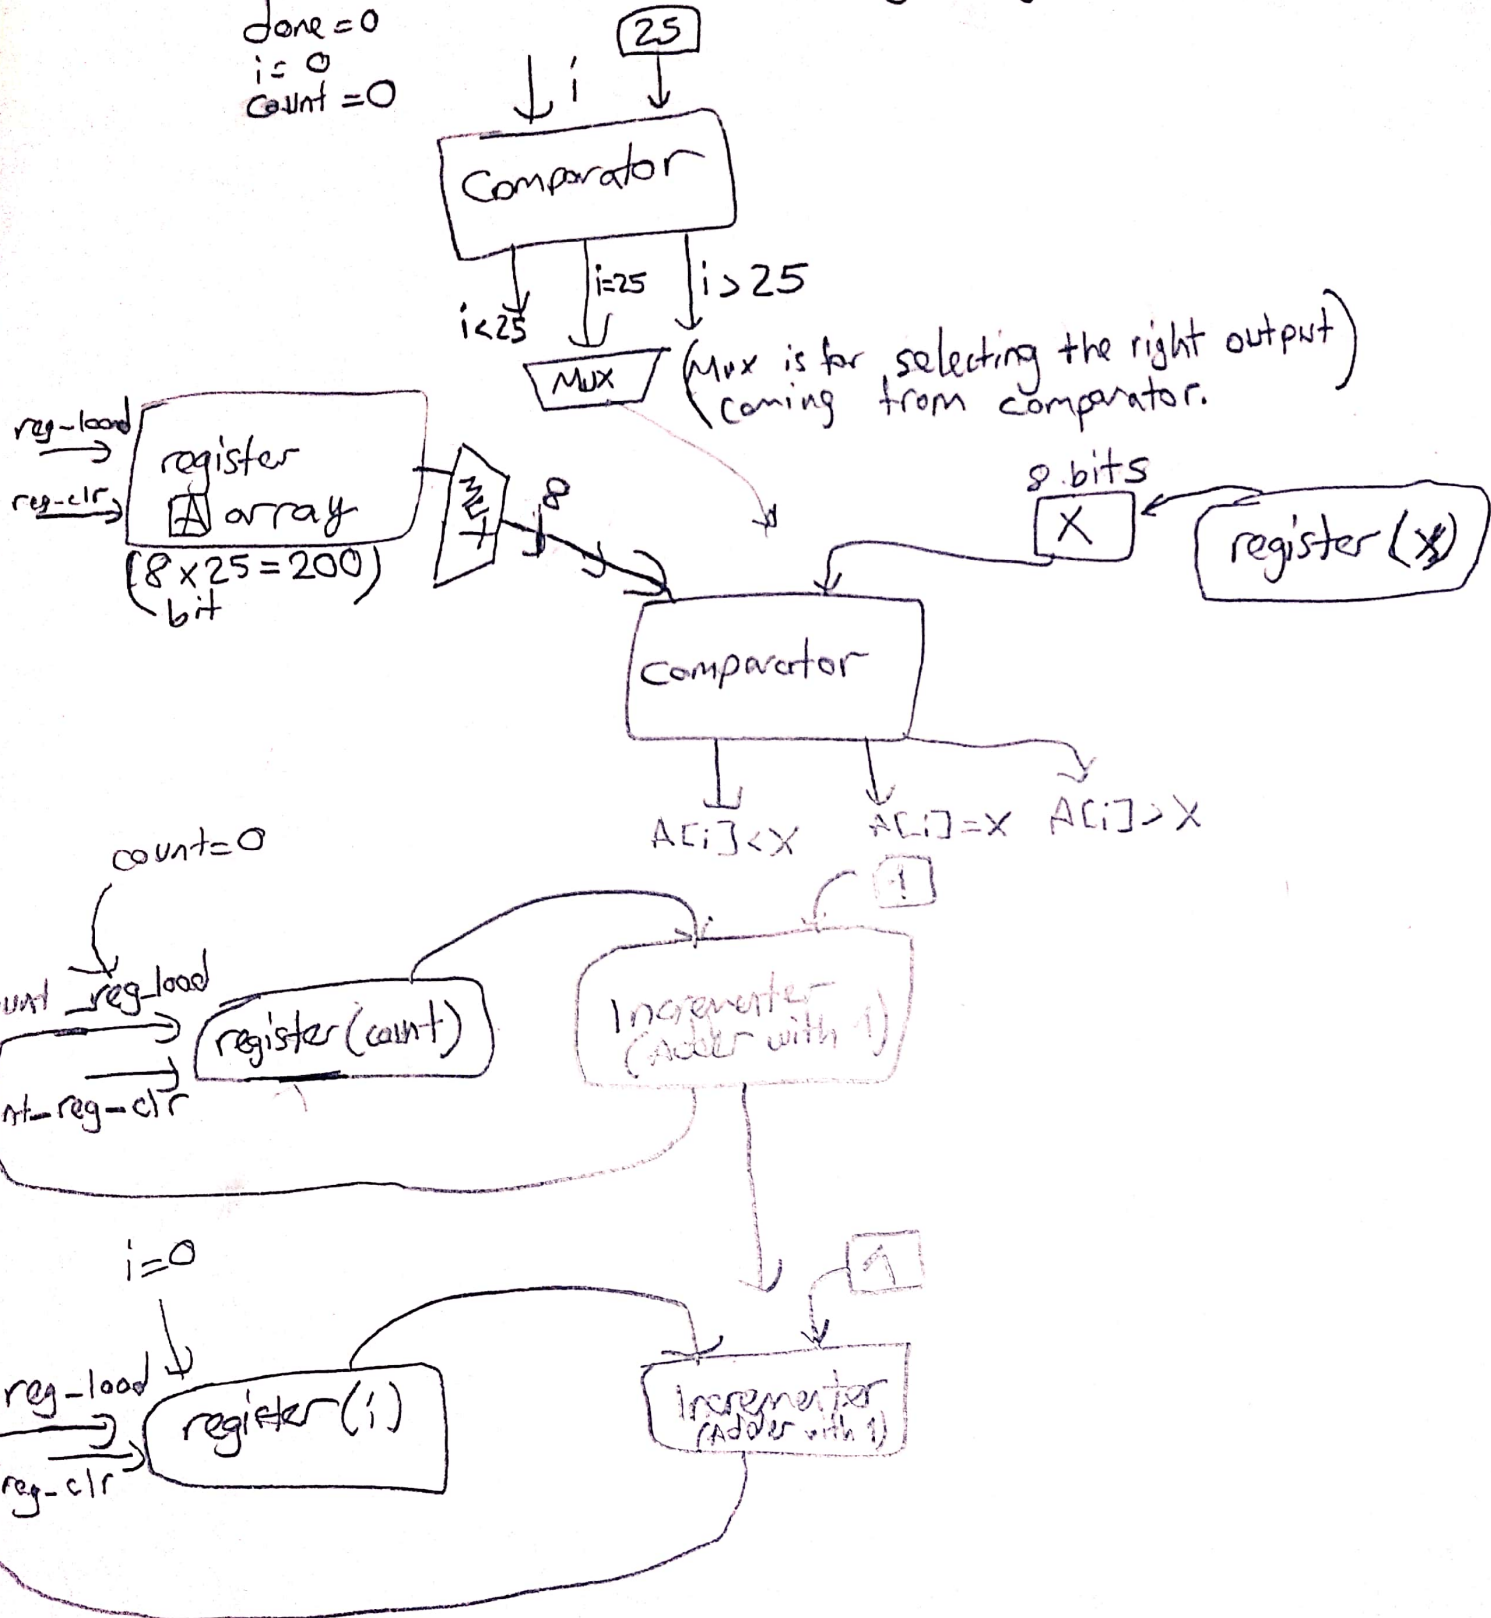 done = 0
i = 0
count = 0
25
i
Comparator
i<25
i=25
i>25
Mux
(Mux is for selecting the right output)
coming from comparator.
reg-load
reg-clr
register
A array
(8x25=200)
bit
8
8 bits
X
register (x)
Comparator
A[i]<X
A[i]=X
A[i]>X
count=0
1
reg-load
register (count)
reg-clr
Incrementer
(Adder with 1)
i=0
1
reg-load
register (i)
reg-clr
Incrementer
(Adder with 1)